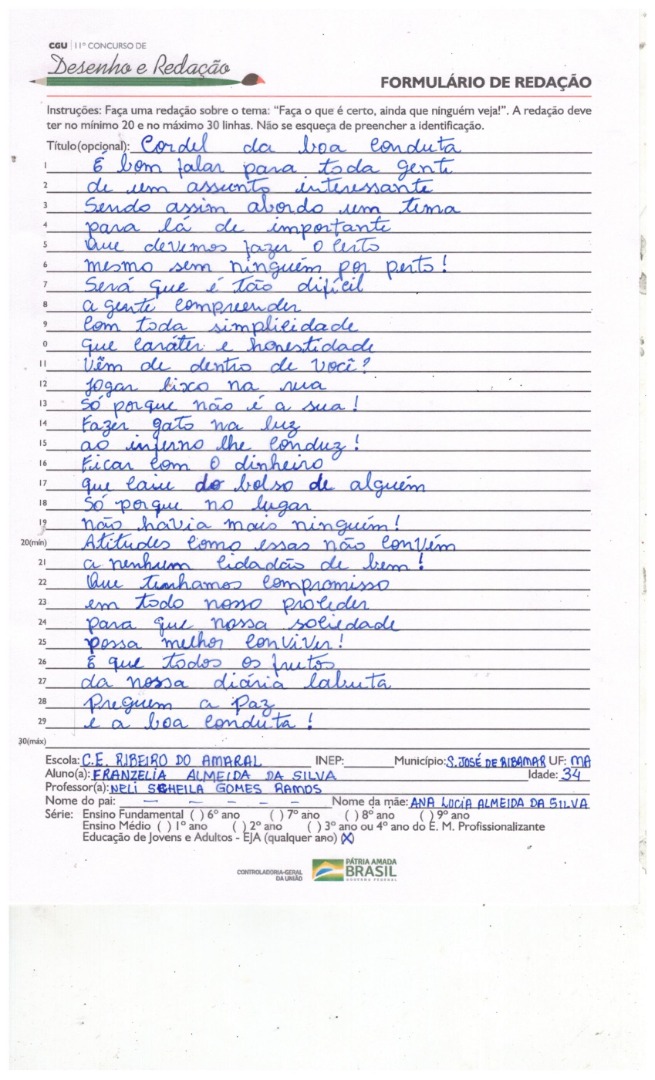 CGU | 11º CONCURSO DE
Desenho e Redação
FORMULÁRIO DE REDAÇÃO
Instruções: Faça uma redação sobre o tema: "Faça o que é certo, ainda que ninguém veja!". A redação deve
ter no mínimo 20 e no máximo 30 linhas. Não se esqueça de preencher a identificação.
Título(opcional): Cordel da boa conduta
1 É bom falar para toda gente
2 de um assunto interessante
3 Sendo assim abordo um tema
4 para lá de importante
5 Que devemos fazer o certo
6 mesmo sem ninguém por perto!
7 Será que é tão difícil
8 a gente compreender
9 Com toda simplicidade
0 que caráter e honestidade
11 Vêm de dentro de você?
12 Jogar lixo na rua
13 Só porque não é a sua!
14 Fazer gato na luz
15 ao inferno lhe conduz!
16 Ficar com o dinheiro
17 que caiu do bolso de alguém
18 Só porque no lugar
19 não havia mais ninguém!
20(mín) Atitudes como essas não convém
21 a nenhum cidadão de bem!
22 Que tenhamos compromisso
23 em todo nosso proceder
24 para que nossa sociedade
25 possa melhor conviver!
26 E que todos os frutos
27 da nossa diária labuta
28 Preguem a paz
29 e a boa conduta!
30(máx)
Escola: C.E. RIBEIRO DO AMARAL INEP: Município: S. JOSÉ DE RIBAMAR UF: MA
Aluno(a): FRANZELIA ALMEIDA DA SILVA Idade: 34
Professor(a): NELI SCHEILA GOMES RAMOS
Nome do pai: — — — — — Nome da mãe: ANA LUCIA ALMEIDA DA SILVA
Série: Ensino Fundamental ( ) 6º ano ( ) 7º ano ( ) 8º ano ( ) 9º ano
Ensino Médio ( ) 1º ano ( ) 2º ano ( ) 3º ano ou 4º ano do E. M. Profissionalizante
Educação de Jovens e Adultos - EJA (qualquer ano) (X)
CONTROLADORIA-GERAL
DA UNIÃO
PÁTRIA AMADA
BRASIL
GOVERNO FEDERAL